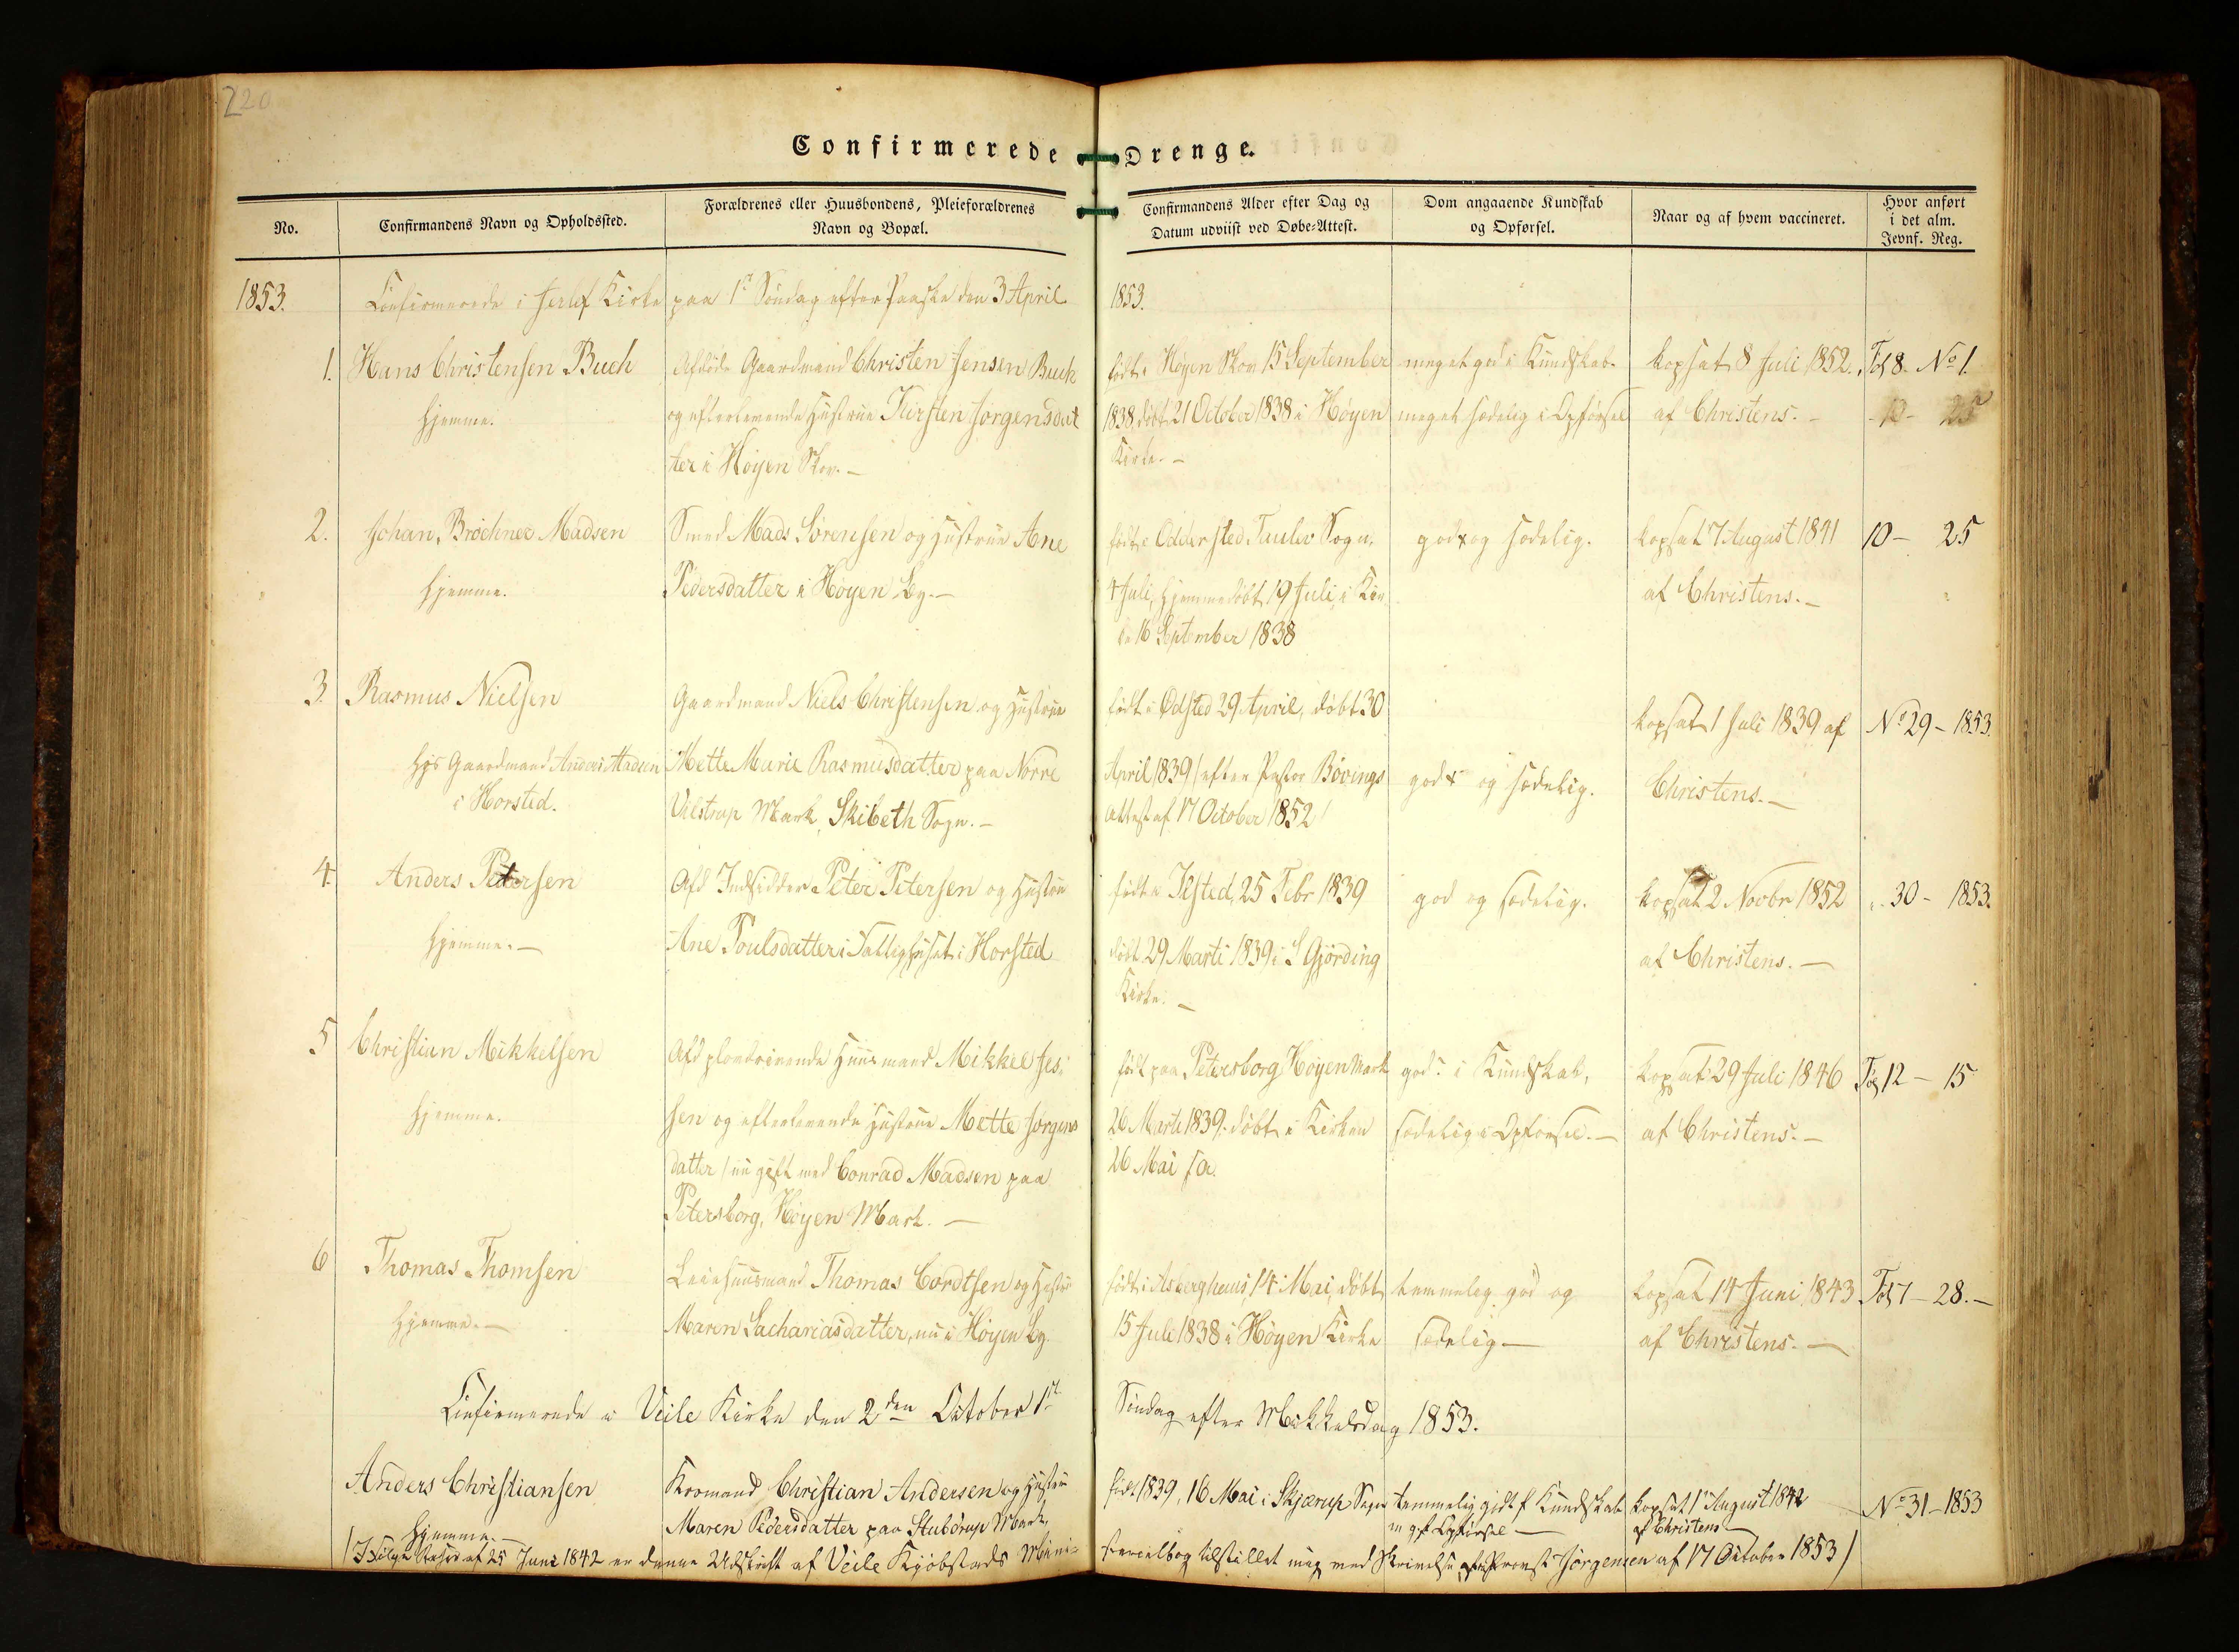 220
Confirmerede Drenge.
No.
Confirmandens Navn og Opholdssted.
Forældrenes eller Huusbondens, Pleieforældrenes
Navn og Bopæl.
Confirmandens Alder efter Dag og
Datum udviist ved Døbe-Attest.
Dom angaaende Kundskab
og Opførsel.
Naar og af hvem vaccineret.
Hvor anført
i det alm.
Jevnf. Reg.
1853. Confirmerede i Jerlef Kirke paa 1ste Søndag efter Paaske den 3 April 1853.
1.
Hans Christensen Buch
hjemme.
Afdøde Gaardmand Christen Jensen Buch
og efterlevende Hustrue Kirsten Jørgensdat
ter i Høyen Skov. -
født i Høyen Skov 15 September
1838, døbt 21 October 1838 i Høyen
Kirke. -
meget god i Kundskab.
meget sædelig i Opførsel
kopsat 8 Juli 1852.
af Christens. -
Fol 8. No 1.
- 10 - 25
2.
Johan Brøchner Madsen
hjemme.
Smed Mads Sørensen og Hustrue Ane
Pedersdatter i Høyen By. -
født i Oddersted Taulov Sogn,
4 Juli, hjemmedøbt 19 Juli, i Kir
ke 16 September 1838
godt og sædelig.
kopsat 7 August 1841
af Christens. -
10 - 25
3.
Rasmus Nielsen
hos Gaardmand Anders Madsen
i Horsted.
Gaardmand Niels Christensen og Hustrue
Mette Marie Rasmusdatter paa Nørre
Vilstrup Mark, Skibeth Sogn. -
født i Ødsted 29 April, døbt 30
April 1839 / efter Pastor Bøvings
Attest af 17 October 1852 /
godt og sædelig.
kopsat 1 Juli 1839 af
Christens. -
No 29 - 1853.
4.
Anders Petersen
hjemme. -
Afd Indsidder Peter Petersen og Hustrue
Ane Poulsdatter i Fattighuset i Horsted
født i Jested, 25 Febr 1839
døbt 29 Marti 1839 i S Gjørding
Kirke. -
god og sædelig.
kopsat 2 Novbr 1852
af Christens. -
" 30 - 1853.
5
Christian Mikkelsen
hjemme.
Afd plovdrivende Huusmand Mikkel Jes-
sen og efterlevende Hustrue Mette Jørgens
datter / nu gift med Conrad Madsen paa
Petersborg, Høyen Mark. -
født paa Petersborg Høyen Mark
26 Marti 1839. døbt i Kirken
26 Mai s a.
god i Kundskab,
sædelig i Opførsel. -
kopsat 29 Juli 1846
af Christens. -
Fol 12 - 15
6
Thomas Thomsen
hjemme. -
Leiehuusmand Thomas Cordtsen og Hustrue
Maren Sachariasdatter, nu i Høyen By.
født i Asberghuus, 14 Mai, døbt
15 Juli 1838 i Høyen Kirke
temmelig god og
sædelig -
kopsat 14 Juni 1843
af Christens. -
Fol 7 - 28. -
Confirmerede i Veile Kirke den 2den October 1ste Søndag efter Mikkelsdag 1853.
Anders Christiansen
hjemme. -
Kromand Christian Andersen og Hustrue
Maren Pedersdatter paa Stubdrup Mark,
født 1839, 16 Mai i Skjærup Sogn
temmelig godt f Kundskab
m g f Opførsel -
kopsat 1ste August 1842
af Christens -
No 31 - 1853
/ Ifølge af 25 Juni 1842 er denne Udskrift af Veile Kjøbstads Mini-
sterialbog tilstillet mig med Skrivelse fra Provst Jørgensen af 17 October 1853 /